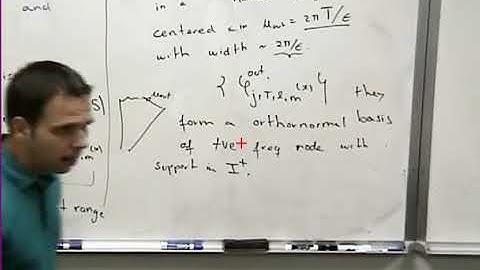 and
in a
centered in μ_out = 2πT/ε
with width ~ 2π/ε
S)
μout
{ φ^out_{j,T,l,m}(x) } they
form a orthornormal basis
of +ve + freq node with
support in I^+.
t range